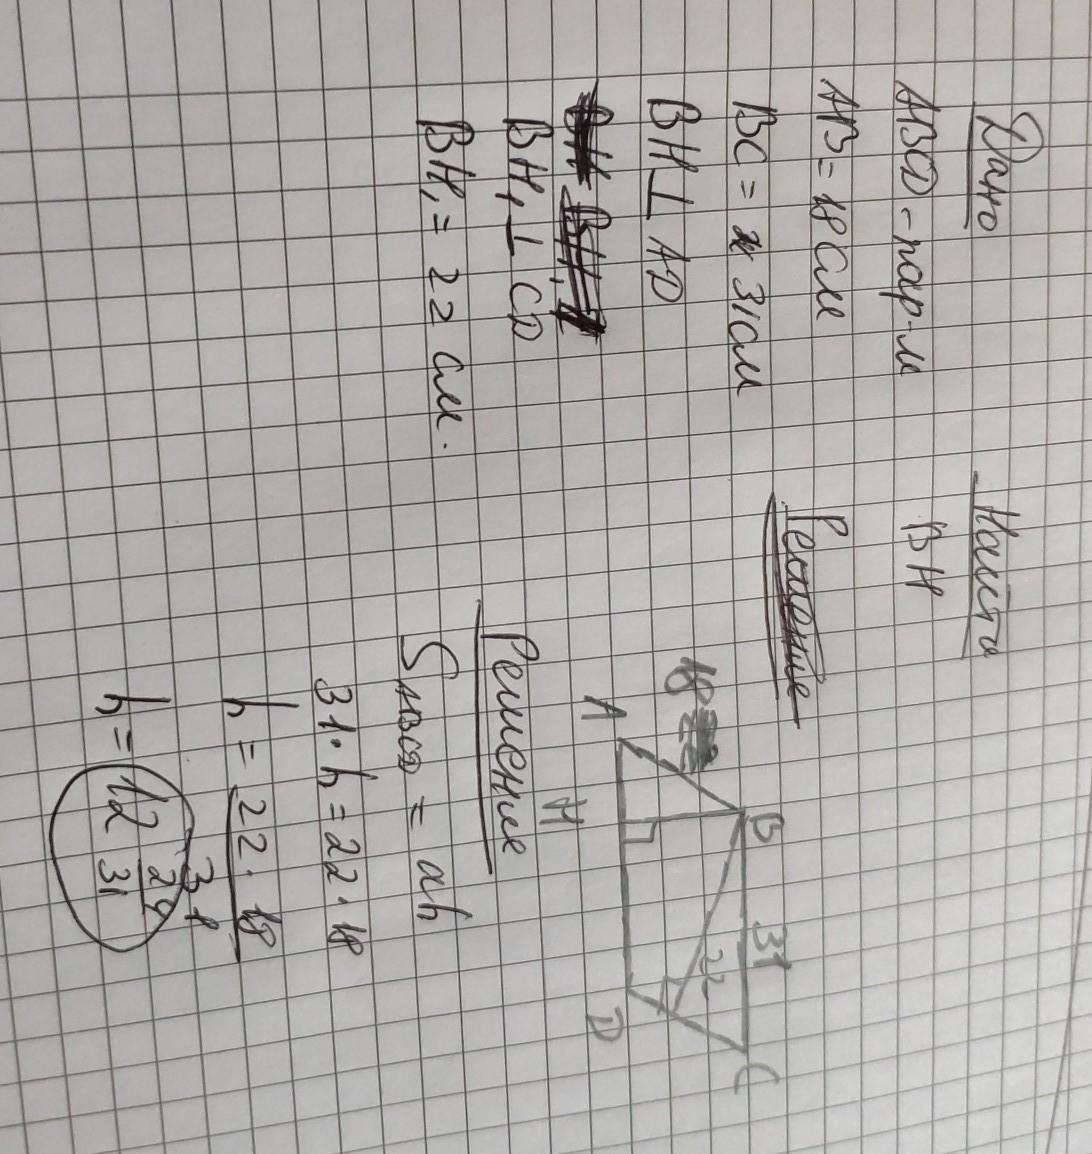 Дано
ABCD - пар-м
AB = 18 см
BC = 31 см
BH ⊥ AD
BH₁ ⊥ CD
BH₁ = 22 см.
Найти
BH
Решение
18
A
B
31
C
22
H
D
Решение
S ABCD = ah
31 · h = 22 · 18
h = 22 · 18 / 31
h = 12 24/31